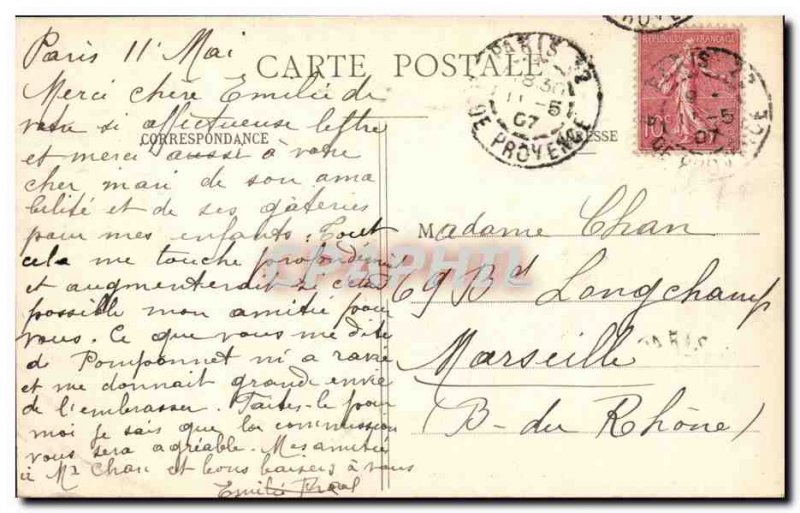 CARTE POSTALE
CORRESPONDANCE
ADRESSE
Paris 11 Mai
Merci chère Emilie de
votre si affectueuse lettre
et merci aussi à votre
cher mari de son ama
bilité et de ses gâteries
pour mes enfants. Tout
cela me touche profondément
et augmenterait si cela
possible mon amitié pour
vous. Ce que vous me dite
de Pomponnet m'a ravie
et me donnait grande envie
de l'embrasser. Faites-le pour
moi je sais que la commission
vous sera agréable. Mes amitiés
à Mr Chan et bons baisers à vous
Emilie
Madame Chan
69 Bd Longchamp
Marseille
(B-du Rhône)
REPUBLIQUE FRANÇAISE
10c
PARIS 22
18 30
11 -5
07
DE PROVENCE
PARIS 22
-5
07
PARIS
CPAPHIL